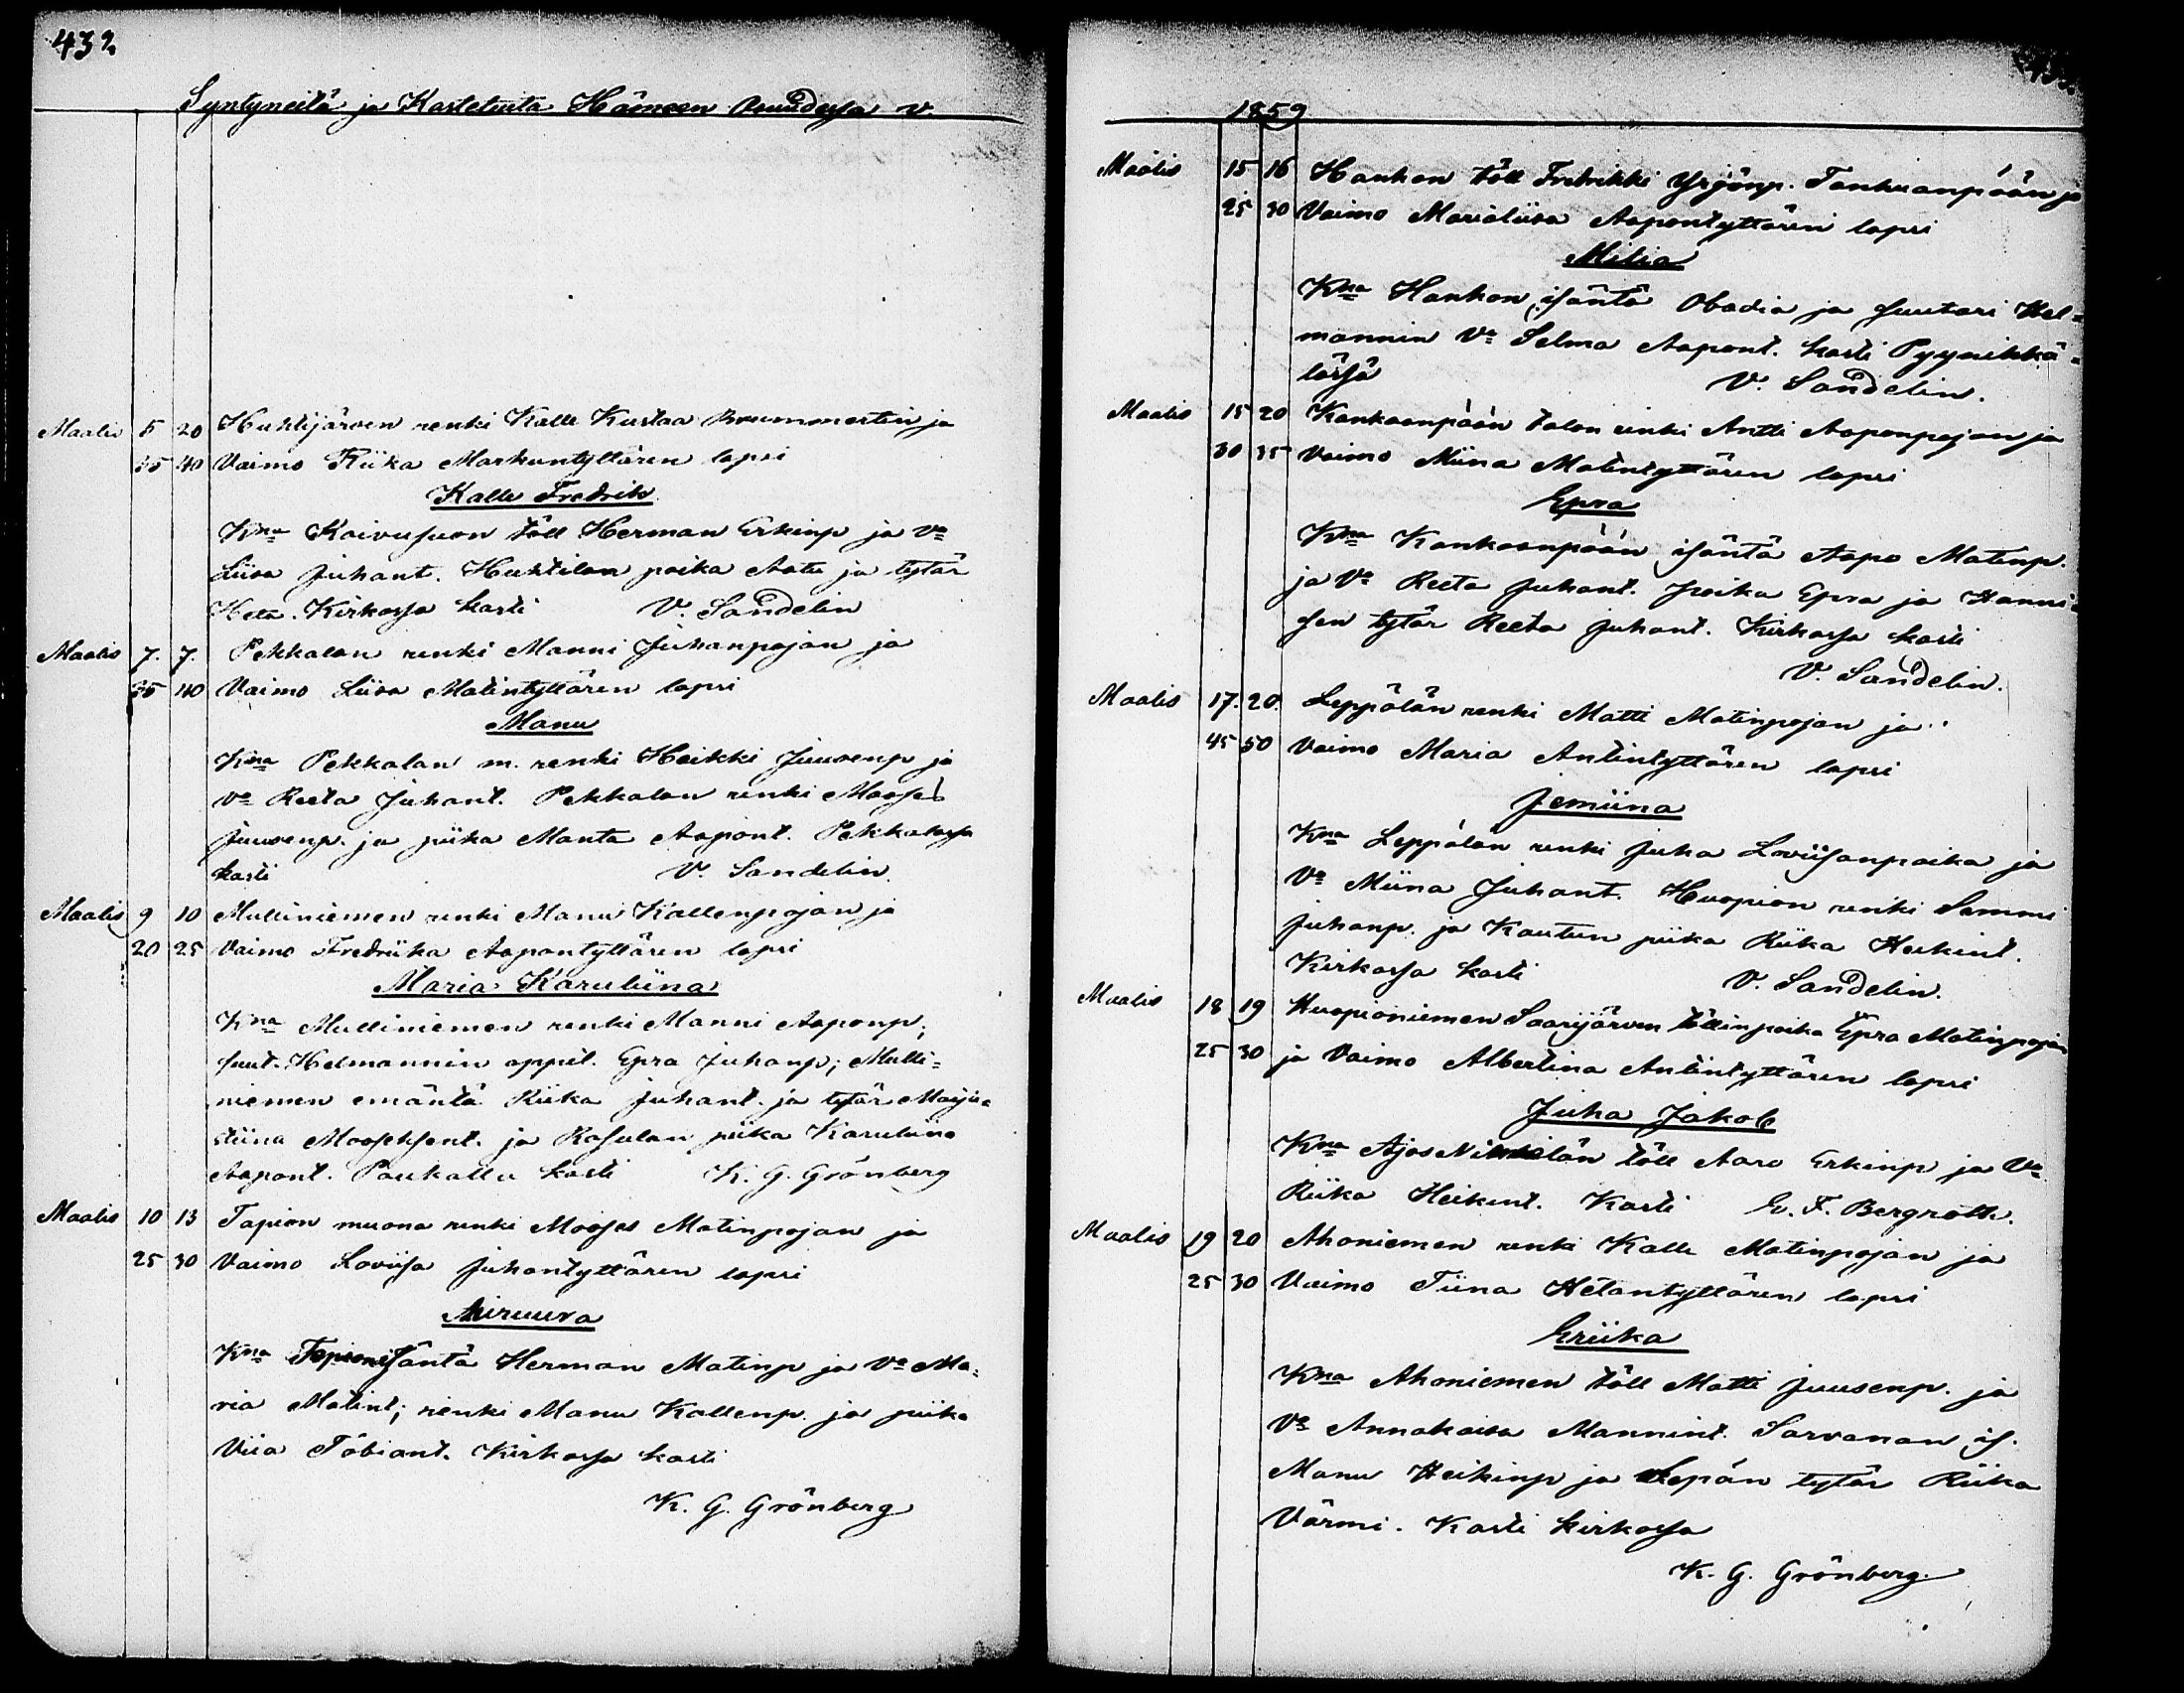 432
Syntyneitä ja Kastetuita Hämeen Osuudessa v.
Maalis 5 20 Huhtijärven renki Kalle Kustaa Brummertin ja
35 40 Vaimo Riika Markuntyttären lapsi
Kalle Fredrik
Kna Koivusuon töll Herman Erkinp ja Va
Liisa Juhant. Huhtilan poika Aatu ja tytär
Heta. Kirkossa kasti V. Sandelin
Maalis 7. 7. Pekkalan renki Manni Juhanpojan ja
35 40 Vaimo Liisa Matintyttären lapsi
Manu
Kna Pekkalan m. renki Heikki Juusenp ja
Va Reeta Juhant. Pekkalan renki Mooses
Juusenp. ja piika Manta Aapont. Pekkalassa
kasti V. Sandelin
Maalis 9 10 Mulliniemen renki Manu Kallenpojan ja
20 25 Vaimo Fredriika Aapontyttären lapsi
Maria Karuliina
Kna Mulliniemen renki Manni Aaponp,
suut. Helmannin oppil. Epra Juhanp; Mulli-
niemen emäntä Riika Juhant. ja tytär Maija-
stiina Mooseksent. ja Rasulan piika Karuliina
Aapont. Paukalla kasti K. G. Grönberg
Maalis 10 13 Tapion muona renki Mooses Matinpojan ja
25 30 Vaimo Loviisa Juhantyttären lapsi
Miruuva
Kna Tapion isäntä Herman Matinp ja Va Ma-
ria Matint; renki Manu Kallenp. ja piika
Viia Tobiant. Kirkossa kasti
K. G. Grönberg
1859
Maalis 15 16 Hankon töll Fredrikki Yrjönp. Tanhuanpään ja
25 30 Vaimo Marialiisa Aapontyttären lapsi
Milia
Kna Hankon isäntä Obadia ja suutari Hel-
mannin Va Selma Aapont. kasti Pyynikkä-
lässä V. Sandelin.
Maalis 15 20 Kankaanpään talon renki Antti Aaponpojan ja
30 35 Vaimo Miina Matintyttären lapsi
Epra
Kna Kankaanpään isäntä Aapo Matinp.
ja Va Reeta Juhant. poika Epra ja Hanni-
sen tytär Reeta Juhant. Kirkossa kasti
V. Sandelin.
Maalis 17. 20. Leppälän renki Matti Matinpojan ja
45 50 Vaimo Maria Antintyttären lapsi
Jemiina
Kna Leppälän renki Juha Loviisanpoika ja
Va Miina Juhant. Huopion renki Sammi
Juhanp. ja Kautun piika Riika Heikint.
Kirkossa kasti V. Sandelin.
Maalis 18 19 Huopioniemen Saarijärven töllinpoika Epra Matinpojan
25 30 ja Vaimo Albertina Antintyttären lapsi
Juha Jakob
Kna Ajos töll Aaro Erkinp ja Va
Riika Heikint. Kasti Ev. F. Bergroth.
Maalis 19 20 Ahoniemen renki Kalle Matinpojan ja
25 30 Vaimo Tiina Hetantyttären lapsi
Eriika
Kna Ahoniemen töll Matti Juusenp. ja
Va Annakaisa Mannint. Sarvanan is.
Manu Heikinp ja Sepän tytär Riika
Värmi. Kasti kirkossa
K. G. Grönberg.